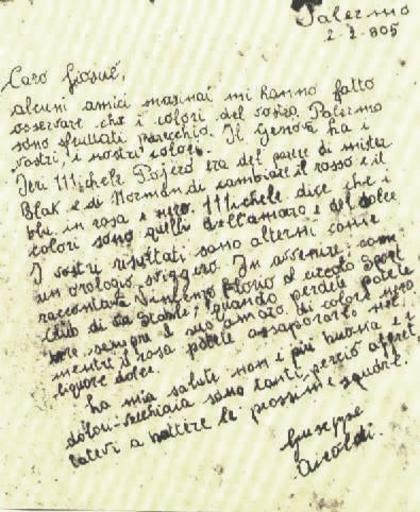 Palermo
2-2-905
Caro Giosuè,
alcuni amici marinai mi hanno fatto
osservare che i colori del vostro Palermo
sono sfruttati parecchio. Il Genova ha i
vostri, i nostri colori.
Ieri Michele Pojero era del parere di mister
Blak e di Normandi cambiare il rosso e il
blu in rosa e nero. Michele dice che i
colori sono quelli dell'amaro e del dolce
I vostri risultati sono alterni come
un orologio svizzero. In avvenire com
raccontava Vincenzo Florio al circolo Sport
Club di via Stabile, quando perdete potete
sempre il suo amaro di colore nero
mentre il rosa potete assaporarlo nel
liquore dolce.
La mia salute non è più buona e i
dolori vecchiaia sono tanti perciò affret
tatevi a battere le prossime squadre.
Giuseppe
Airoldi.